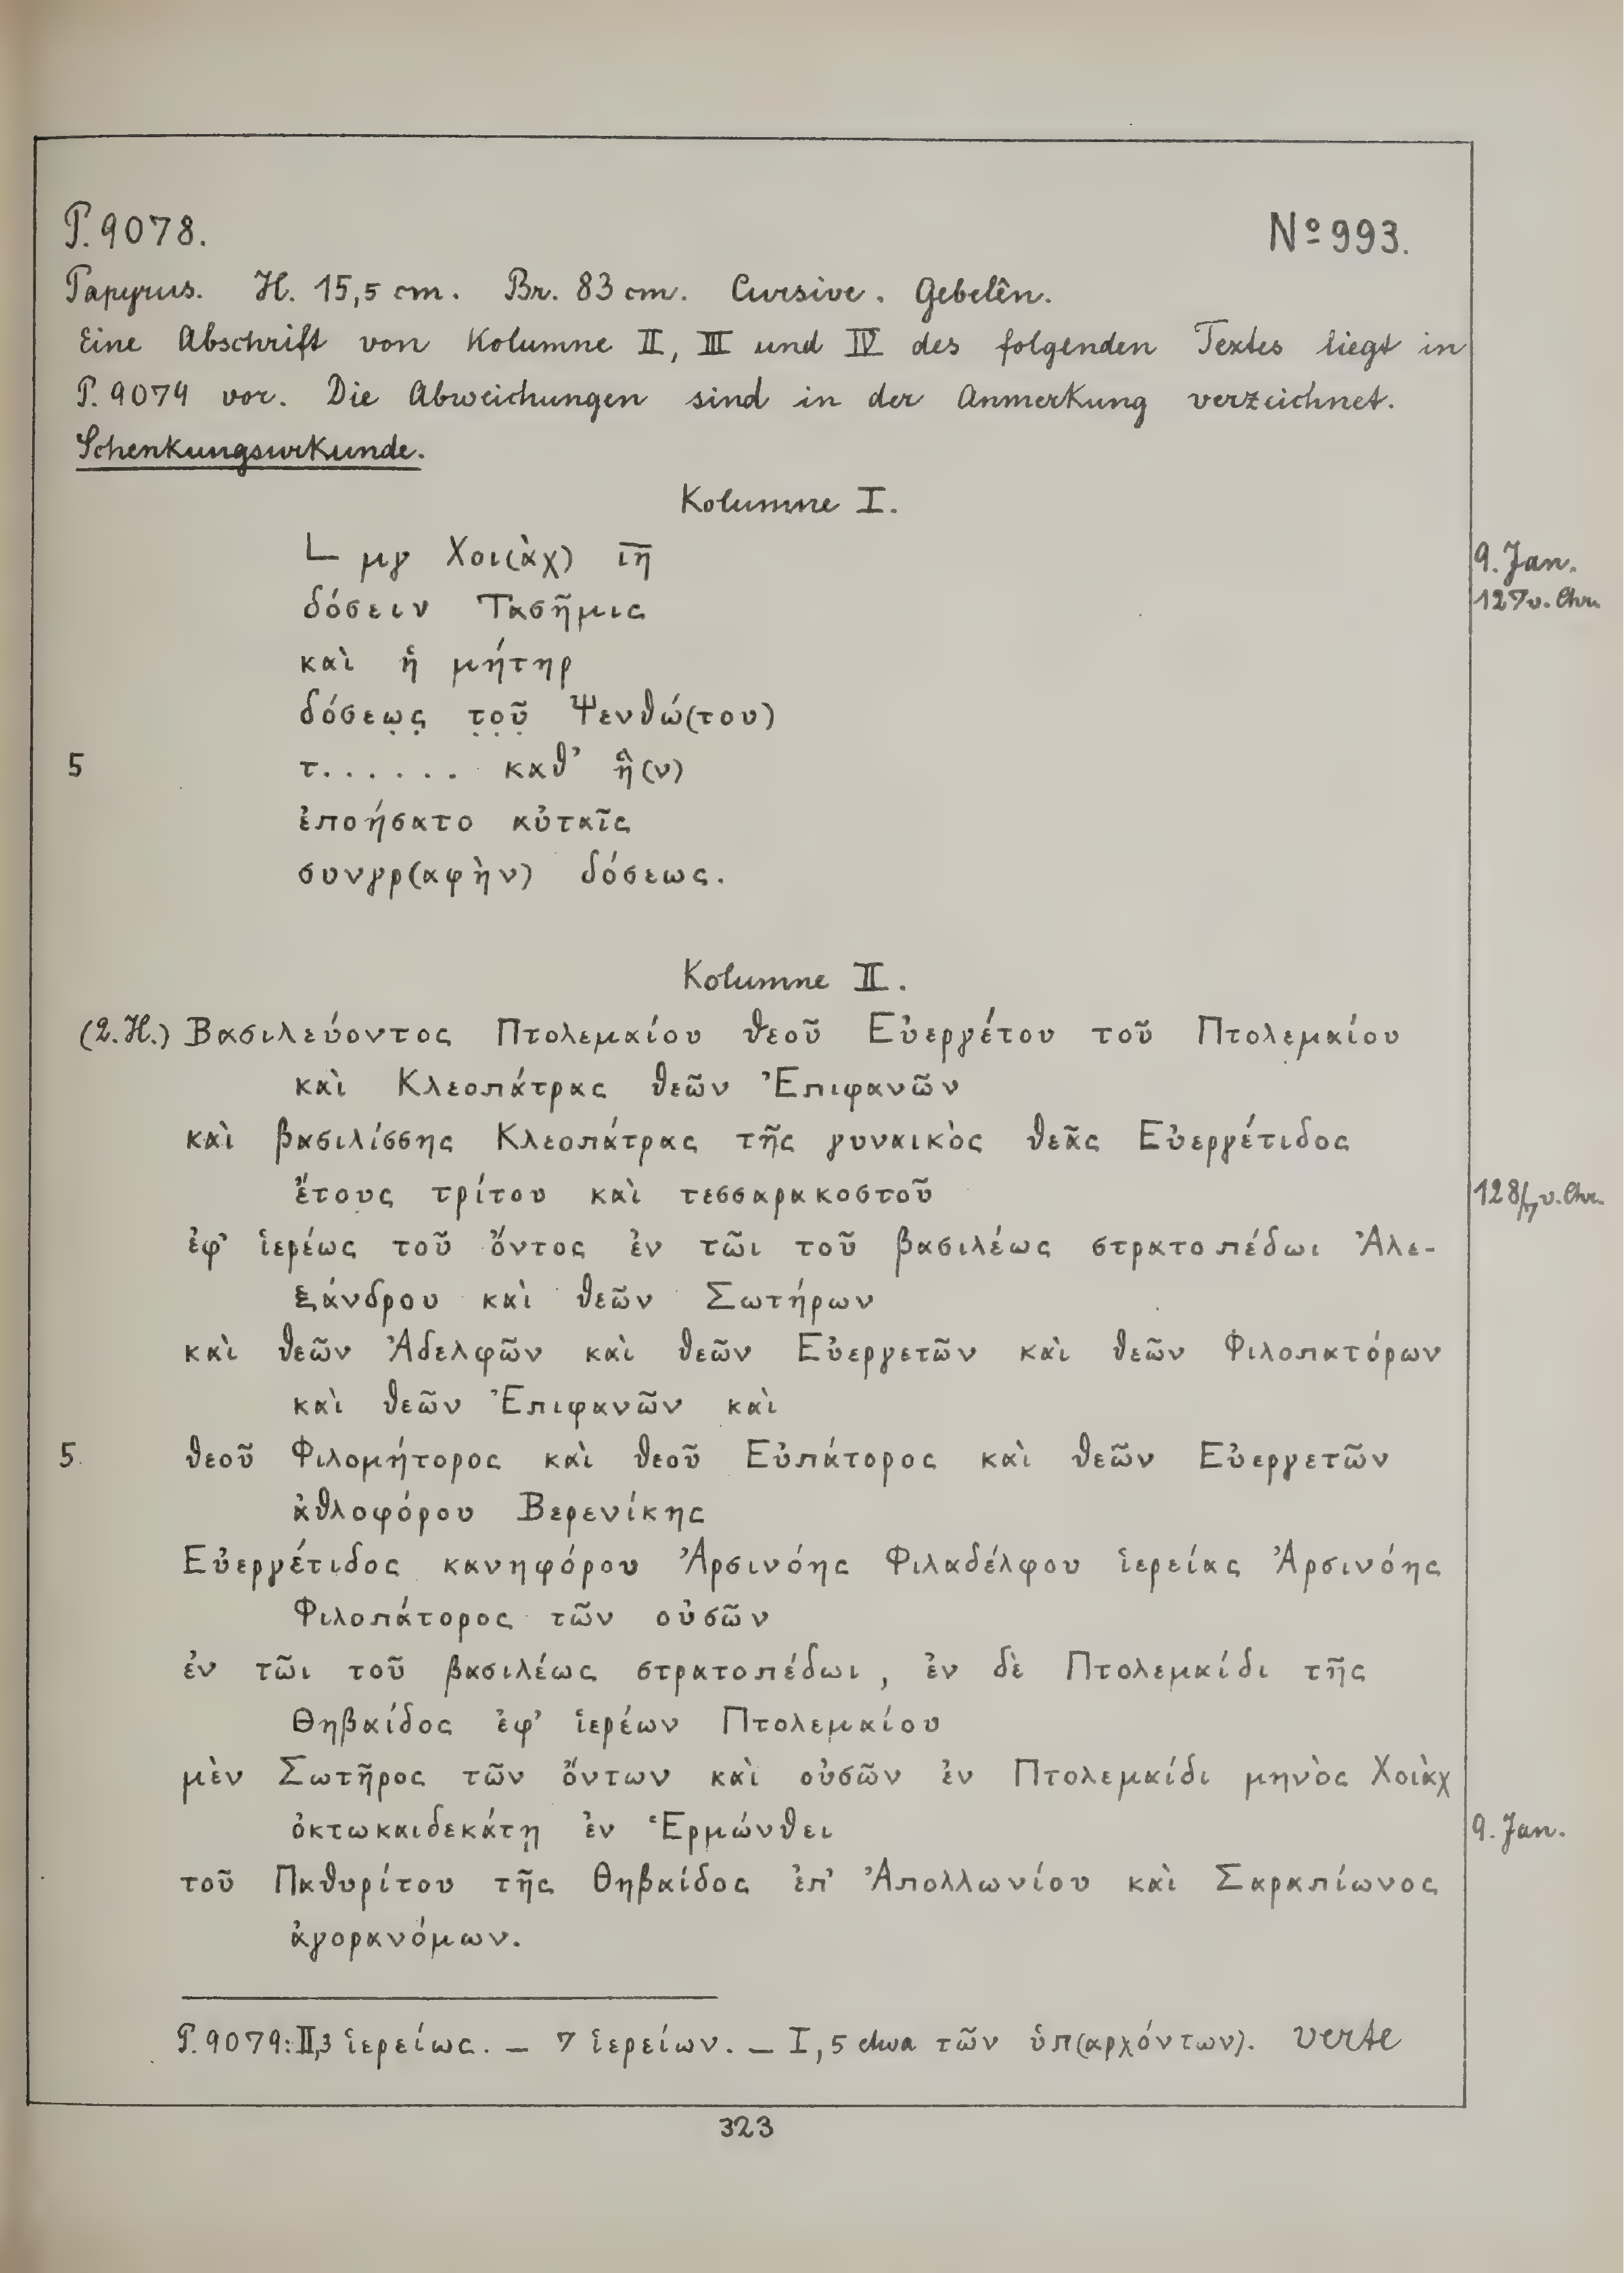 P. 9078. Nº 993.
Papyrus. H. 15,5 cm. Br. 83 cm. Cursive. Gebelên.
Eine Abschrift von Kolumne II, III und IV des folgenden Textes liegt in
P. 9079 vor. Die Abweichungen sind in der Anmerkung verzeichnet.
Schenkungsurkunde.
Kolumne I.
∟ μγ Χοι(ὰχ) ι̅η̅ 9. Jan.
δόσειν Τασῆμις 127 v. Chr.
καὶ ἡ μήτηρ
δόσεω̣ς̣ τ̣ο̣ῦ̣ Ψενθώ(του)
5 τ...... καθʼ ἣ(ν)
ἐποήσατο αὐταῖς
συνγρ(αφὴν) δόσεως.
Kolumne II.
(2. H.) Βασιλεύοντος Πτολεμαίου θεοῦ Εὐεργέτου τοῦ Πτολεμαίου
καὶ Κλεοπάτρας θεῶν Ἐπιφανῶν
καὶ βασιλίσσης Κλεοπάτρας τῆς γυναικὸς θεᾶς Εὐεργέτιδος
ἔτους τρίτου καὶ τεσσαρακοστοῦ 128/7 v. Chr.
ἐφʼ ἱερέως τοῦ ὄντος ἐν τῶι τοῦ βασιλέως στρατοπέδωι Ἀλε-
ξάνδρου καὶ θεῶν Σωτήρων
καὶ θεῶν Ἀδελφῶν καὶ θεῶν Εὐεργετῶν καὶ θεῶν Φιλοπατόρων
καὶ θεῶν Ἐπιφανῶν καὶ
5. θεοῦ Φιλομήτορος καὶ θεοῦ Εὐπάτορος καὶ θεῶν Εὐεργετῶν
ἀθλοφόρου Βερενίκης
Εὐεργέτιδος κανηφόρου Ἀρσινόης Φιλαδέλφου ἱερείας Ἀρσινόης
Φιλοπάτορος τῶν οὐσῶν
ἐν τῶι τοῦ βασιλέως στρατοπέδωι, ἐν δὲ Πτολεμαίδι τῆς
Θηβαίδος ἐφʼ ἱερέων Πτολεμαίου
μὲν Σωτῆρος τῶν ὄντων καὶ οὐσῶν ἐν Πτολεμαίδι μηνὸς Χοιὰχ
ὀκτωκαιδεκάτῃ ἐν Ἑρμώνθει 9. Jan.
τοῦ Παθυρίτου τῆς Θηβαίδος ἐπʼ Ἀπολλωνίου καὶ Σαραπίωνος
ἀγορανόμων.
P. 9079: II,3 ἱερείως. — 7 ἱερείων. — I, 5 etwa τῶν ὑπ(αρχόντων). verte
323